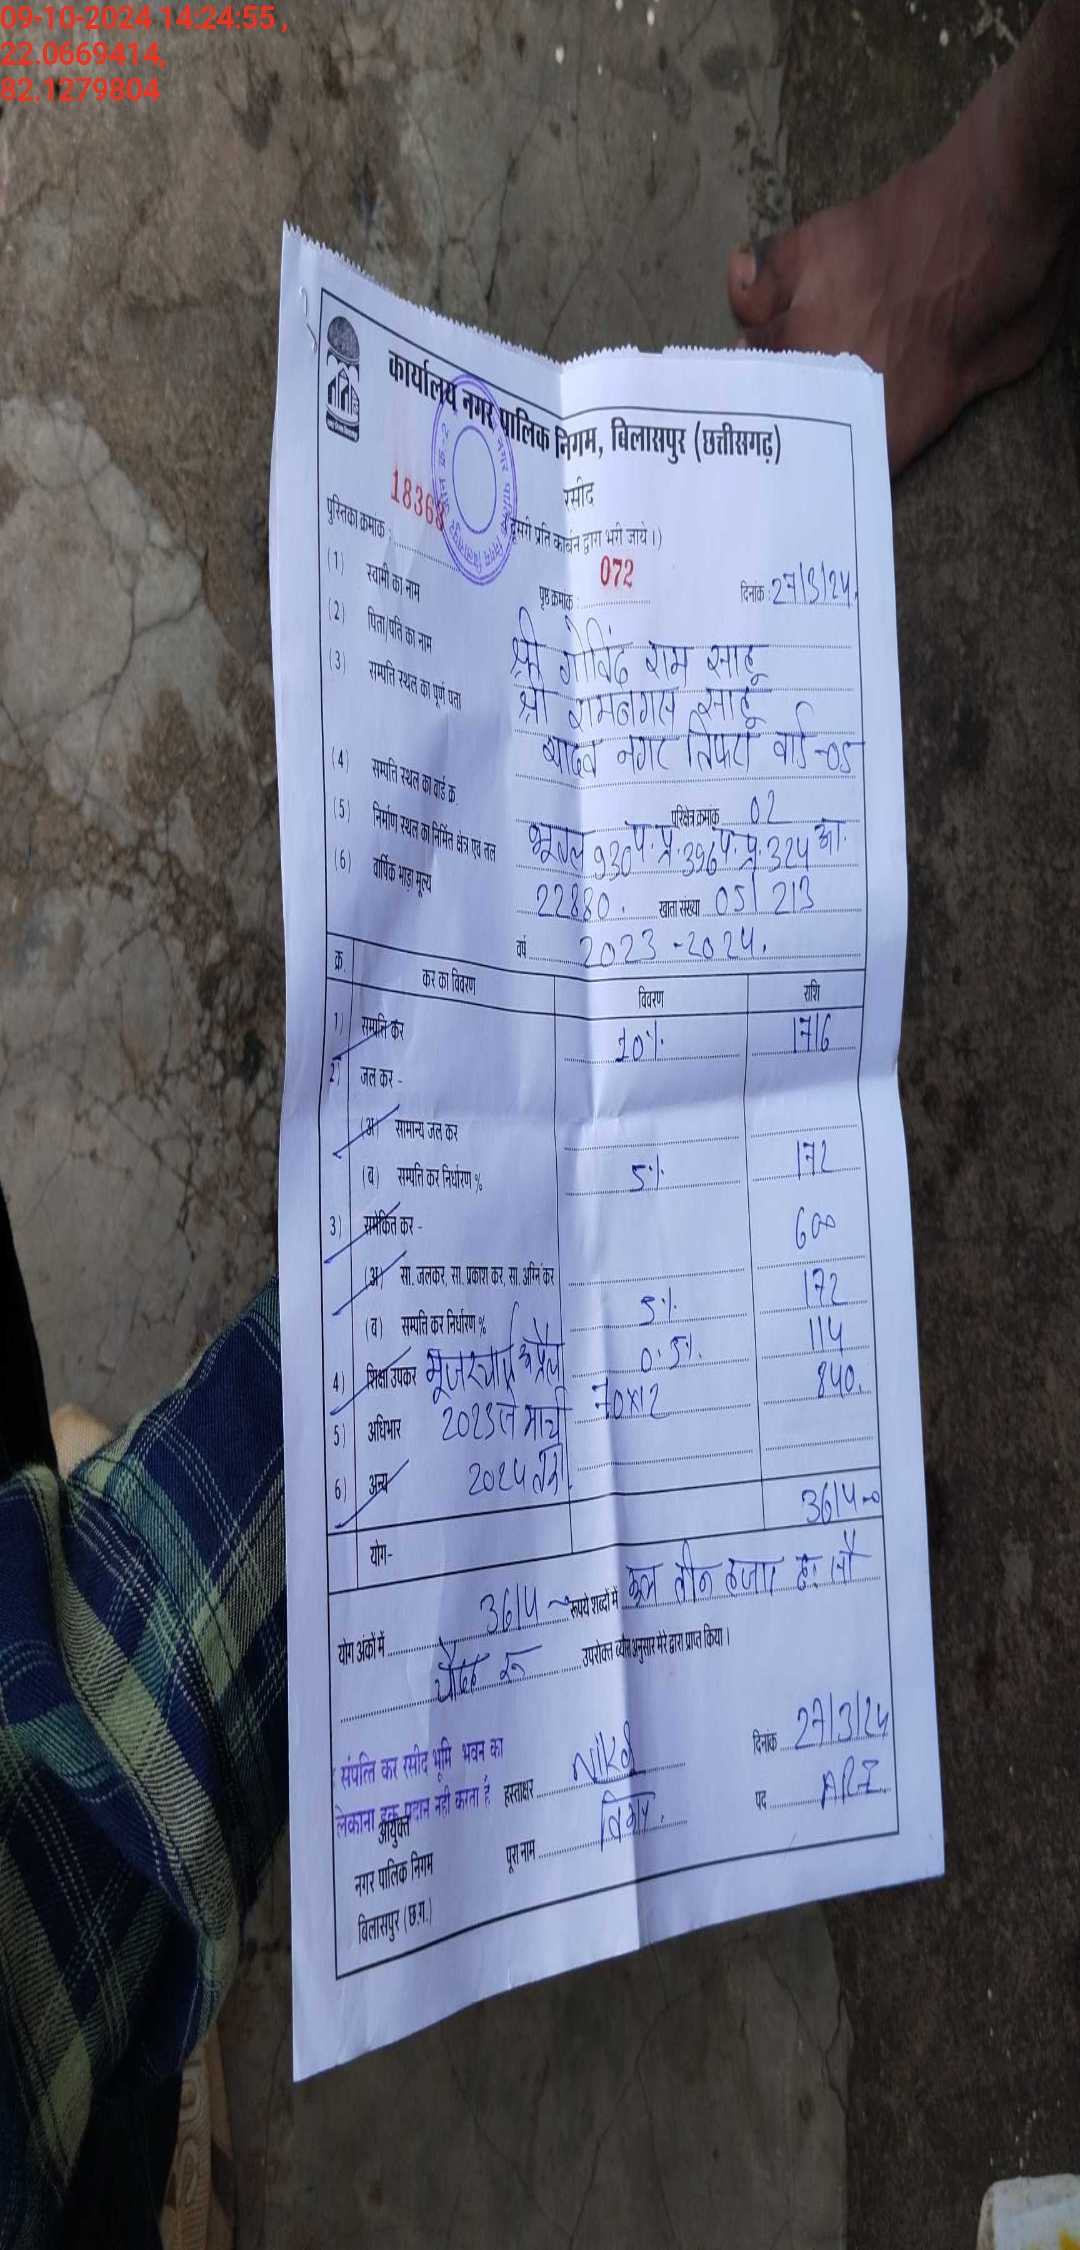 09-10-2024 14:24:55 ,
22.0669414,
82.1279804
कार्यालय नगर पालिक निगम, बिलासपुर (छत्तीसगढ़)
रसीद
दूसरी प्रति कार्बन द्वारा भरी जाये।)
पुस्तिका क्रमांक : 18368 पृष्ठ क्रमांक : 072 दिनांक : 27/3/24
(1) स्वामी का नाम श्री गोविंद राम साहू
(2) पिता/पति का नाम श्री साहू
(3) सम्पत्ति स्थल का पूर्ण पता यादव नगर तिफरा वार्ड-05
(4) सम्पत्ति स्थल का वार्ड क्र. परिक्षेत्र क्रमांक 02
(5) निर्माण स्थल का निर्मित क्षेत्र एवं तल भूतल 930 प.प्र. 396 प.प्र. 324 आ.
(6) वार्षिक भाड़ा मूल्य 22880. खाता संख्या 05/213
वर्ष 2023-2024.
क्र. कर का विवरण विवरण राशि
1) सम्पत्ति कर 10% 1716
2) जल कर -
(अ) सामान्य जल कर
(ब) सम्पत्ति कर निर्धारण % 5% 172
3) समेकित कर - 600
(अ) सा. जलकर, सा. प्रकाश कर, सा. अग्नि कर
(ब) सम्पत्ति कर निर्धारण % 5% 172
4) शिक्षा उपकर यूजरचार्ज अप्रैल 0.5% 114
5) अधिभार 2023 से मार्च 70x12 840.
6) अन्य 2024 तक
योग- 3614-0
योग अंकों में 3614 रूपये शब्दों में कुल तीन हजार छः सौ
चौदह रू उपरोक्त ब्यौरा अनुसार मेरे द्वारा प्राप्त किया।
संपत्ति कर रसीद भूमि भवन का
लेकाना हक प्रदान नही करता है
हस्ताक्षर दिनांक 27/3/24
आयुक्त
नगर पालिक निगम
बिलासपुर (छ.ग.)
पूरा नाम पद ARI